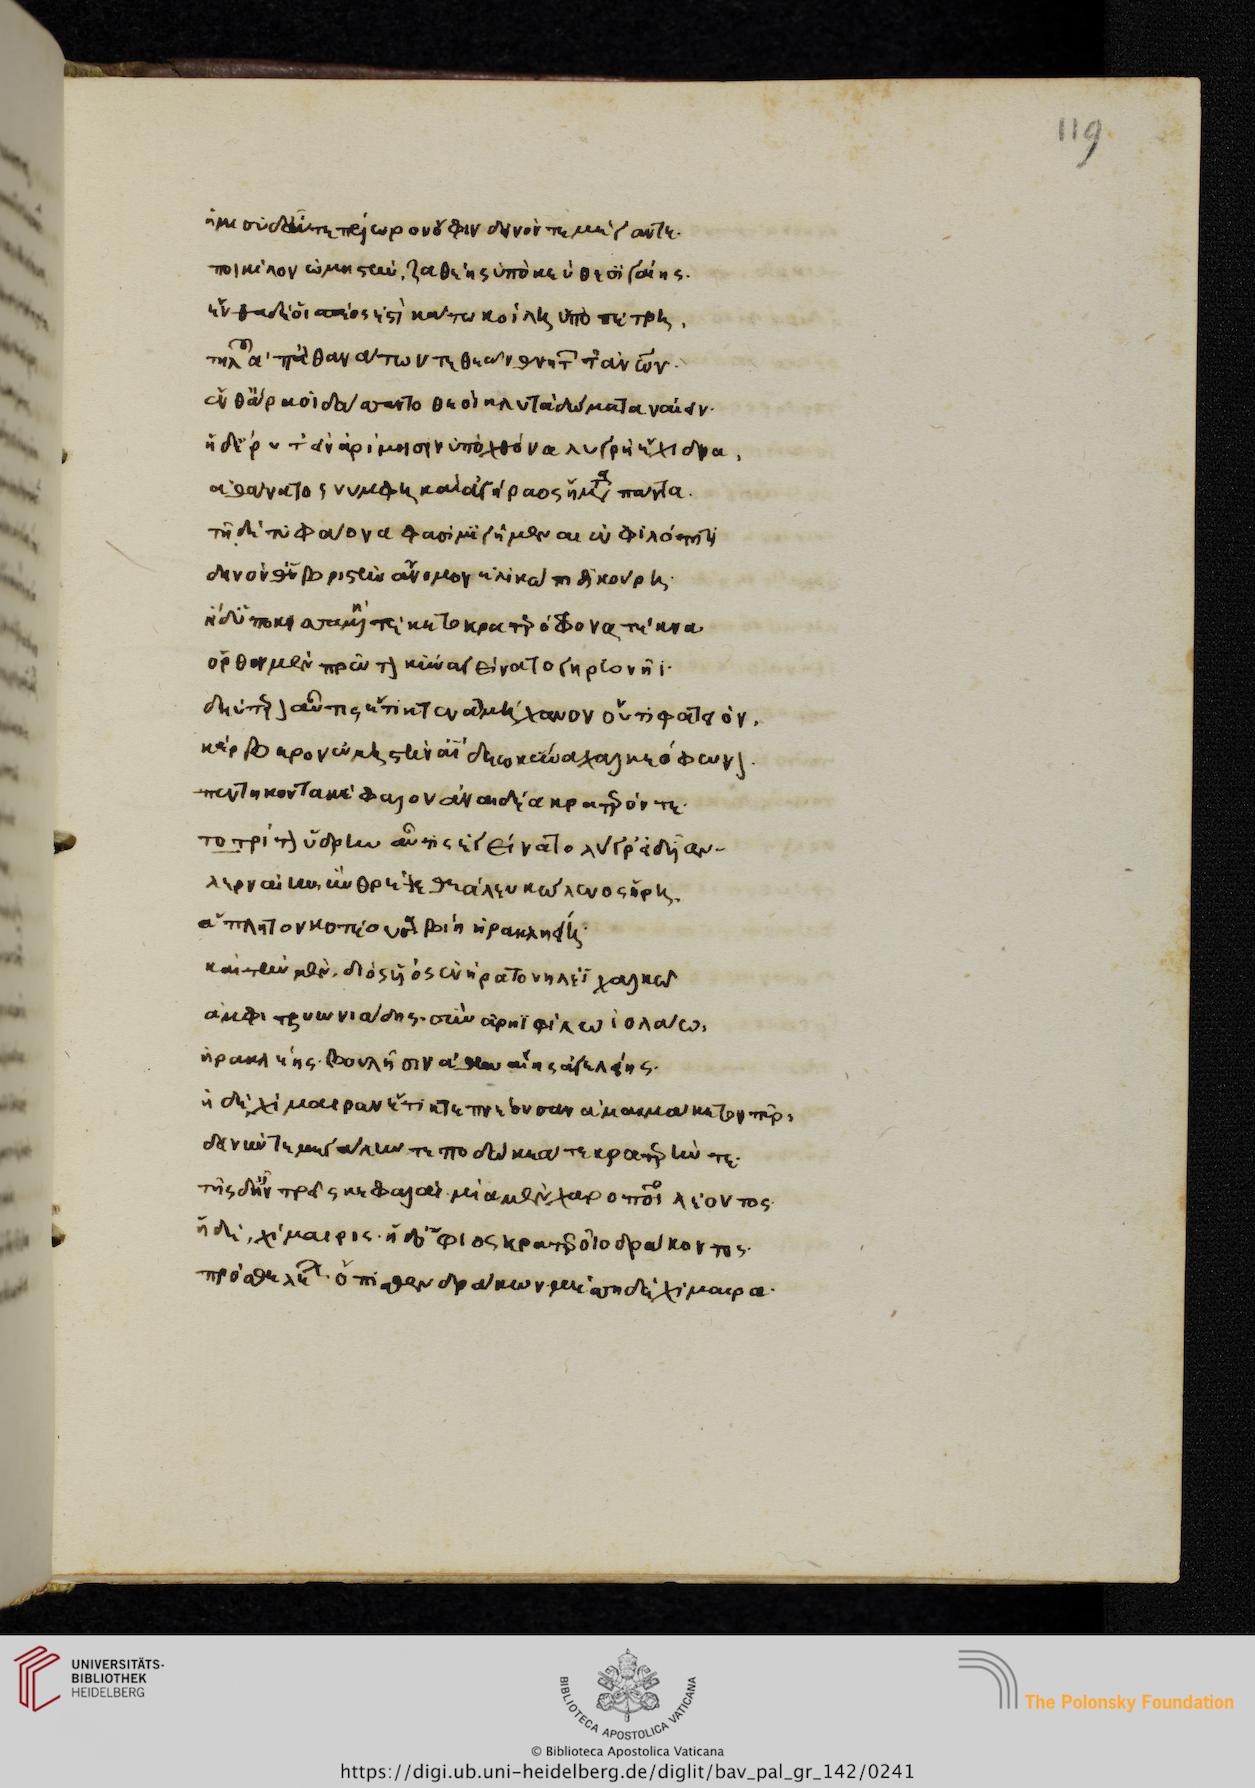 119
ἥμισυ δ' αὖτε πέλωρον ὄφιν δεινόν τε μέγαν τε·
ποικίλον ὠμηστὴν, ζαθέης ὑπὸ κεύθεσι γαίης.
ἔνθα δέ οἱ σπέος ἐστὶ κάτω κοίλῃ ὑπὸ πέτρῃ,
τηλοῦ ἀπ' ἀθανάτων τε θεῶν θνητῶν τ' ἀνθρώπων·
ἔνθ' ἄρ κοι δάσαντο θεοὶ κλυτὰ δώματα ναίειν·
ἡ δ' ἔρυτ' εἰν ἀρίμοισιν ὑπὸ χθόνα λυγρὴ ἔχιδνα,
ἀθάνατος νύμφη καὶ ἀγήραος ἤματα πάντα.
τῇ δὲ τυφάονα φασὶ μιγήμεναι ἐν φιλότητι
δεινόν θ' ὑβριστὴν ἄνομον ἑλικώπιδι κούρῃ·
ἡ δ' ὑποκυσαμένη τέκετο κρατερόφρονα τέκνα
ὄρθον μὲν πρῶτον κύνα γείνατο γηρυονῆι·
δεύτερον αὖτις ἔτικτεν ἀμήχανον οὔτι φατειόν,
κέρβερον ὠμηστὴν ἀΐδεω κύνα χαλκεόφωνον.
πεντηκοντακέφαλον ἀναιδέα κρατερόν τε·
τὸ τρίτον ὕδρην αὖτις ἐγείνατο λυγρὰ ἰδυῖαν
λερναίην ἣν θρέψε θεὰ λευκώλενος ἥρη,
ἄπλητον κοτέουσα βίῃ ἡρακληείῃ·
καὶ τὴν μὲν διὸς υἱὸς ἐνήρατο νηλέϊ χαλκῷ
ἀμφιτρυωνιάδης· σὺν ἀρηϊφίλῳ ἰολάῳ,
ἡρακλέης· βουλῇσιν ἀθηναίης ἀγελείης·
ἡ δὲ χίμαιραν ἔτικτε πνέουσαν ἀμαιμάκετον πῦρ,
δεινήν τε μεγάλην τε ποδώκεά τε κρατερήν τε·
τῆς δ' ἦν τρεῖς κεφαλαί· μία μὲν χαροποῖο λέοντος·
ἡ δὲ, χιμαίρης· ἡ δ' ὄφιος κρατεροῖο δράκοντος·
πρόσθε λέων· ὄπισθεν δράκων· μέσση δὲ χίμαιρα·
UNIVERSITÄTS-
BIBLIOTHEK
HEIDELBERG
BIBLIOTECA APOSTOLICA VATICANA
The Polonsky Foundation
© Biblioteca Apostolica Vaticana
https://digi.ub.uni-heidelberg.de/diglit/bav_pal_gr_142/0241